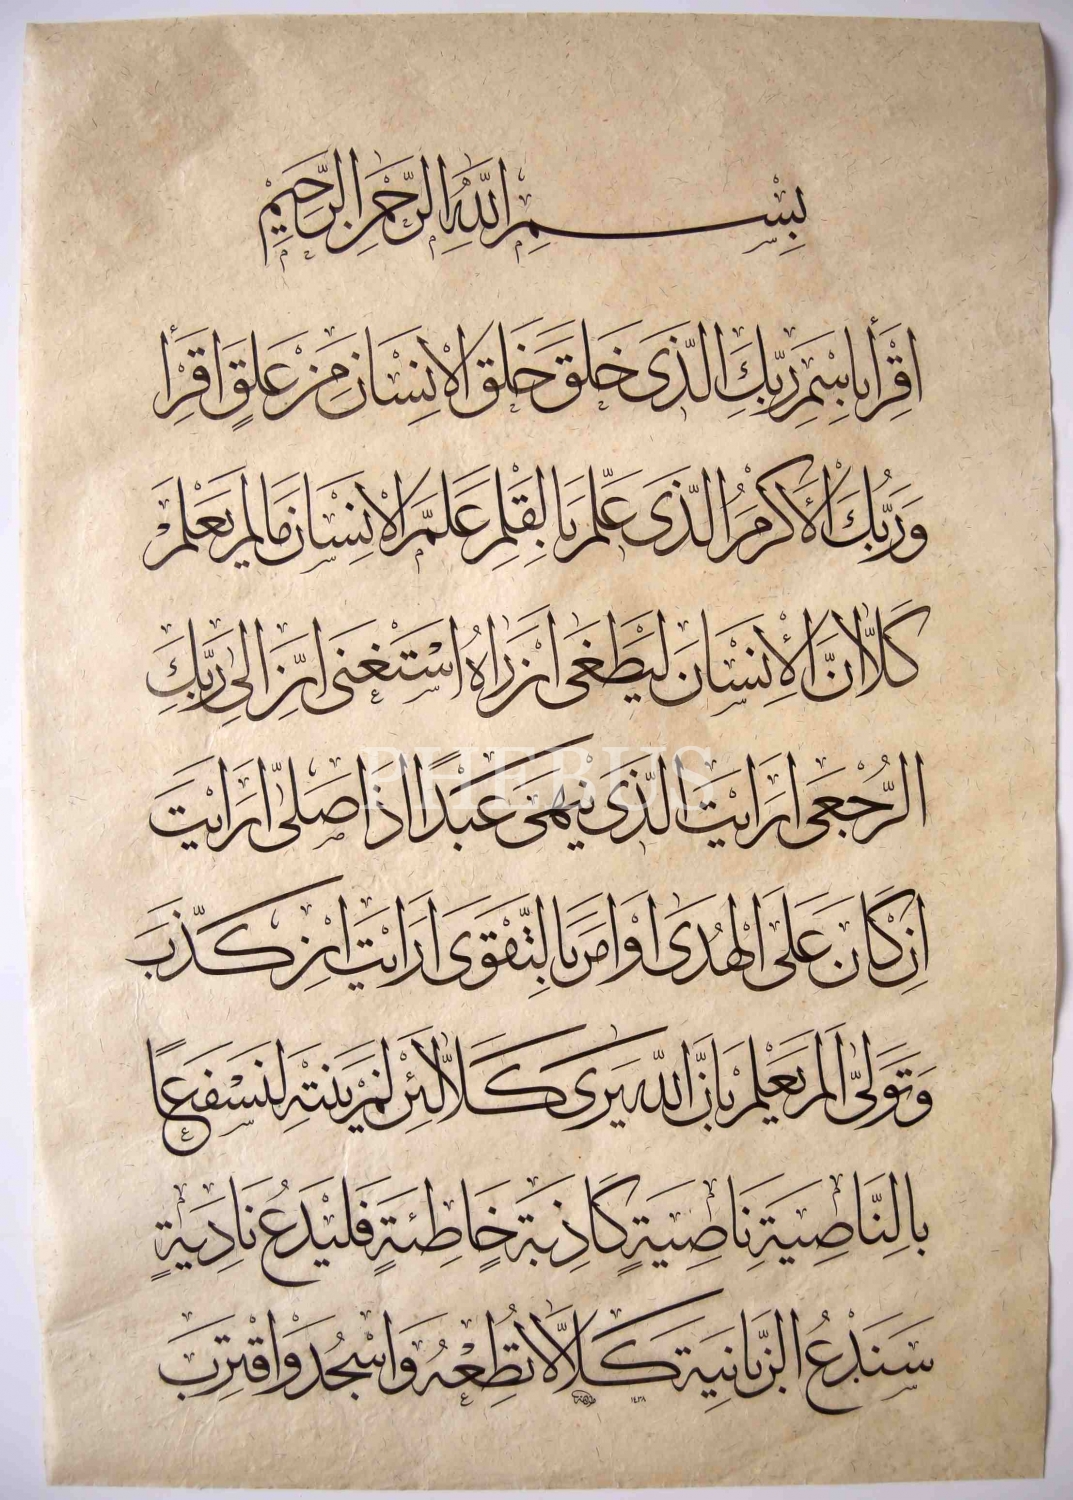 بِسْمِ اللهِ الرَّحْمٰنِ الرَّحِيْمِ
اقْرَأ بِاسْمِ رَبِّكَ الَّذى خَلَقَ خَلَقَ الاِنْسَانَ مِنْ عَلَقٍ اقْرَأ
وَرَبُّكَ الأَكْرَمُ الَّذى عَلَّمَ بِالْقَلَمِ عَلَّمَ الاِنْسَانَ مَا لَمْ يَعْلَمْ
كَلَّا اِنَّ الاِنْسَانَ لَيَطْغَى اَنْ رَاهُ اسْتَغْنَى اِنَّ اِلَى رَبِّكَ
الرُّجْعَى اَرَايْتَ الَّذى يَنْهَى عَبْدًا اذَا صَلَّى اَرَايْتَ
اِنْ كَانَ عَلَى الْهُدَى اَوْ اَمَرَ بِالتَّقْوَى اَرَايْتَ اِنْ كَذَّبَ
وَتَوَلَّى اَلَمْ يَعْلَمْ بِاَنَّ اللهَ يَرَى كَلَّا لَئِنْ لَمْ يَنْتَهِ لَنَسْفَعًا
بِالنَّاصِيَةِ نَاصِيَةٍ كَاذِبَةٍ خَاطِئَةٍ فَلْيَدْعُ نَادِيَةٍ
سَنَدْعُ الزَّبَانِيَةَ كَلَّا لَا تُطِعْهُ وَاسْجُدْ وَاقْتَرِبْ
١٤٣٨
PHEBUS